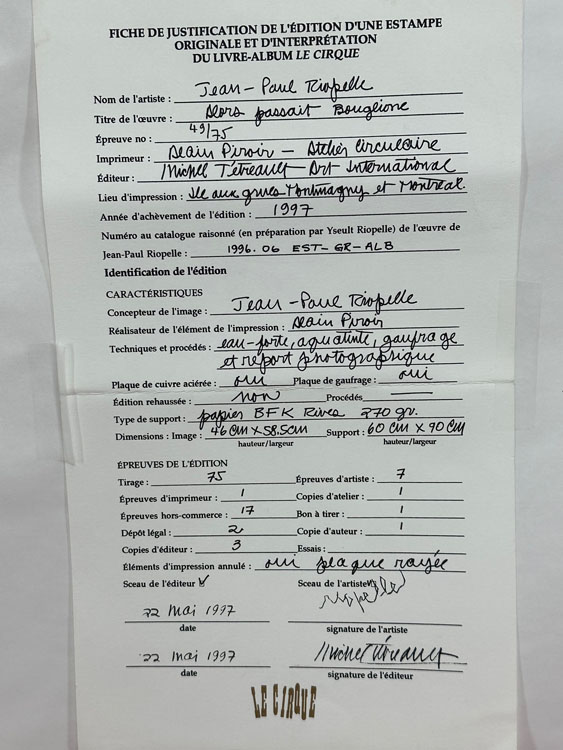 FICHE DE JUSTIFICATION DE L'ÉDITION D'UNE ESTAMPE
ORIGINALE ET D'INTERPRÉTATION
DU LIVRE-ALBUM LE CIRQUE
Nom de l'artiste : Jean-Paul Riopelle
Titre de l'œuvre : Alors passait Bouglione
Épreuve no : 49/75
Imprimeur : Alain Piroir - Atelier Circulaire
Éditeur : Michel Tétreault - Art International
Lieu d'impression : Ile aux grues Montmagny et Montréal.
Année d'achèvement de l'édition : 1997
Numéro au catalogue raisonné (en préparation par Yseult Riopelle) de l'œuvre de
Jean-Paul Riopelle : 1996.06 EST-GR-ALB
Identification de l'édition
CARACTÉRISTIQUES
Concepteur de l'image : Jean-Paul Riopelle
Réalisateur de l'élément de l'impression : Alain Piroir
Techniques et procédés : eau-forte, aquatinte, gaufrage
et report photographique
Plaque de cuivre aciérée : oui Plaque de gaufrage : oui
Édition rehaussée : non Procédés
Type de support : papier BFK Rives 270 gr.
Dimensions : Image : 46 cm X 58.5cm Support : 60 cm X 90 cm
hauteur/largeur hauteur/largeur
ÉPREUVES DE L'ÉDITION
Tirage : 75 Épreuves d'artiste : 7
Épreuves d'imprimeur : 1 Copies d'atelier : 1
Épreuves hors-commerce : 17 Bon à tirer : 1
Dépôt légal : 2 Copie d'auteur : 1
Copies d'éditeur : 3 Essais :
Éléments d'impression annulé : oui plaque rayée
Sceau de l'éditeur ✓ Sceau de l'artiste
22 Mai 1997 Riopelle
date signature de l'artiste
22 Mai 1997 Michel Tétreault
date signature de l'éditeur
LE CIRQUE